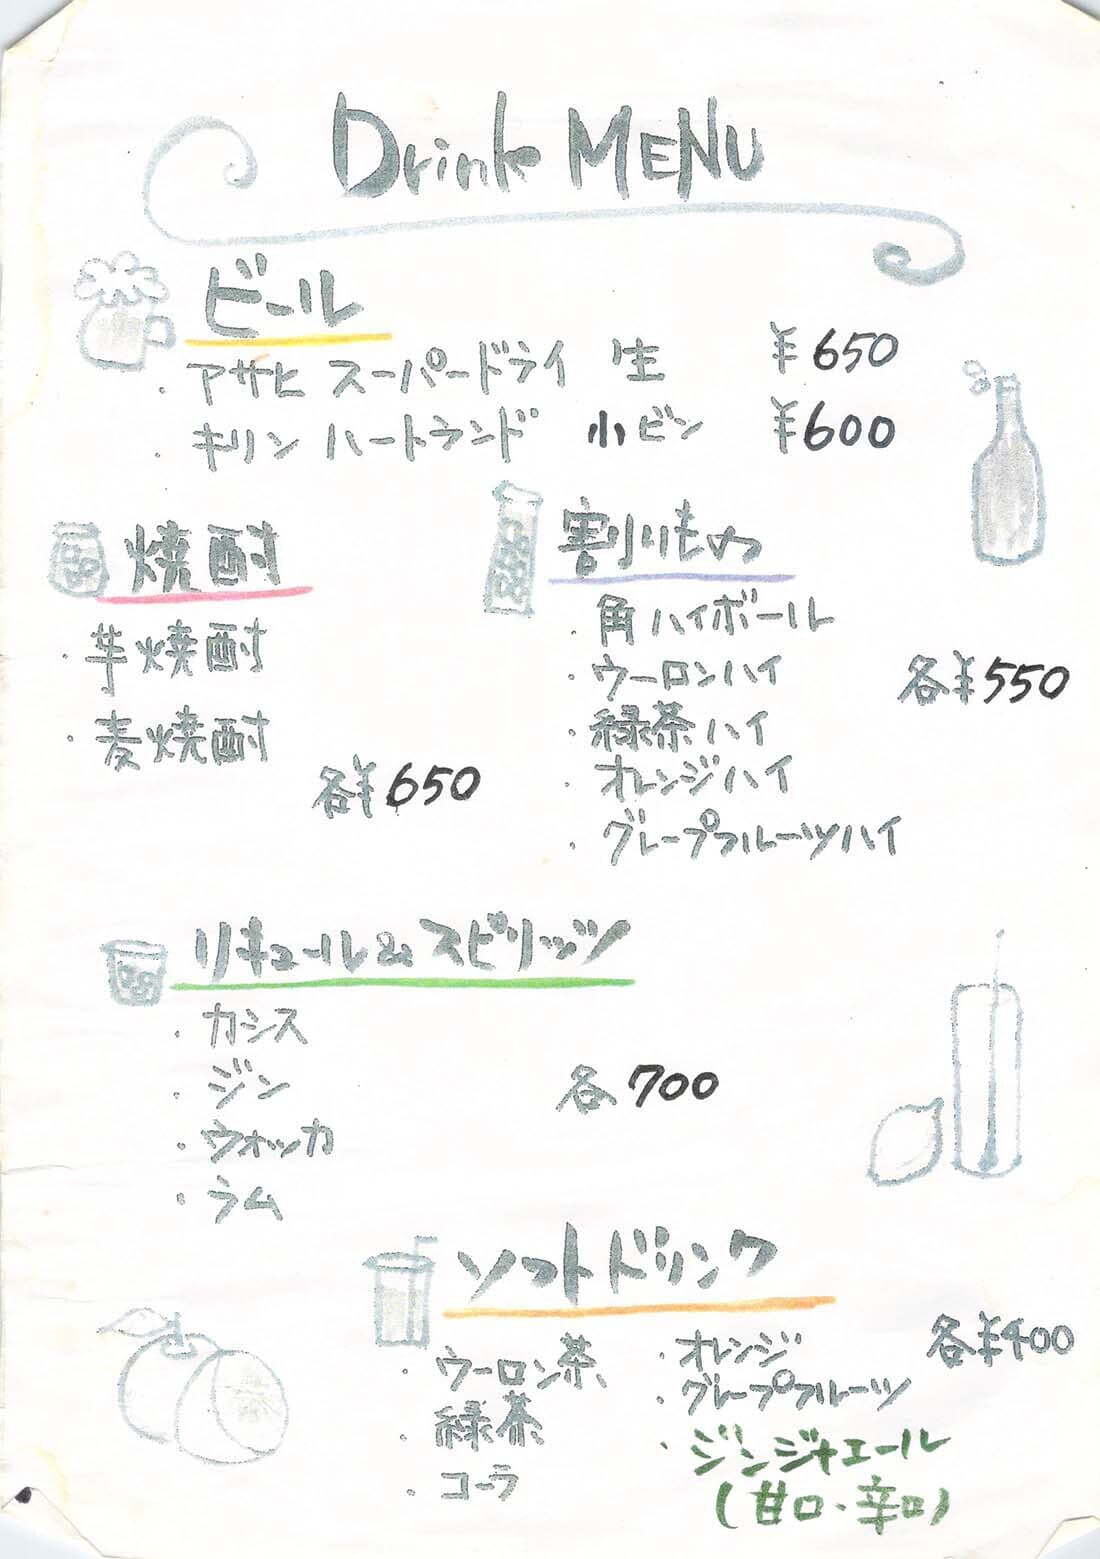 Drink MENU
ビール
・アサヒ スーパードライ 生 ¥650
・キリン ハートランド 小ビン ¥600
焼酎
・芋焼酎
・麦焼酎
各¥650
割りもの
・角ハイボール
・ウーロンハイ
各¥550
・緑茶ハイ
・オレンジハイ
・グレープフルーツハイ
リキュール&スピリッツ
・カシス
・ジン
各700
・ウォッカ
・ラム
ソフトドリンク
各¥400
・ウーロン茶
・緑茶
・コーラ
・オレンジ
・グレープフルーツ
・ジンジャエール
(甘口・辛口)